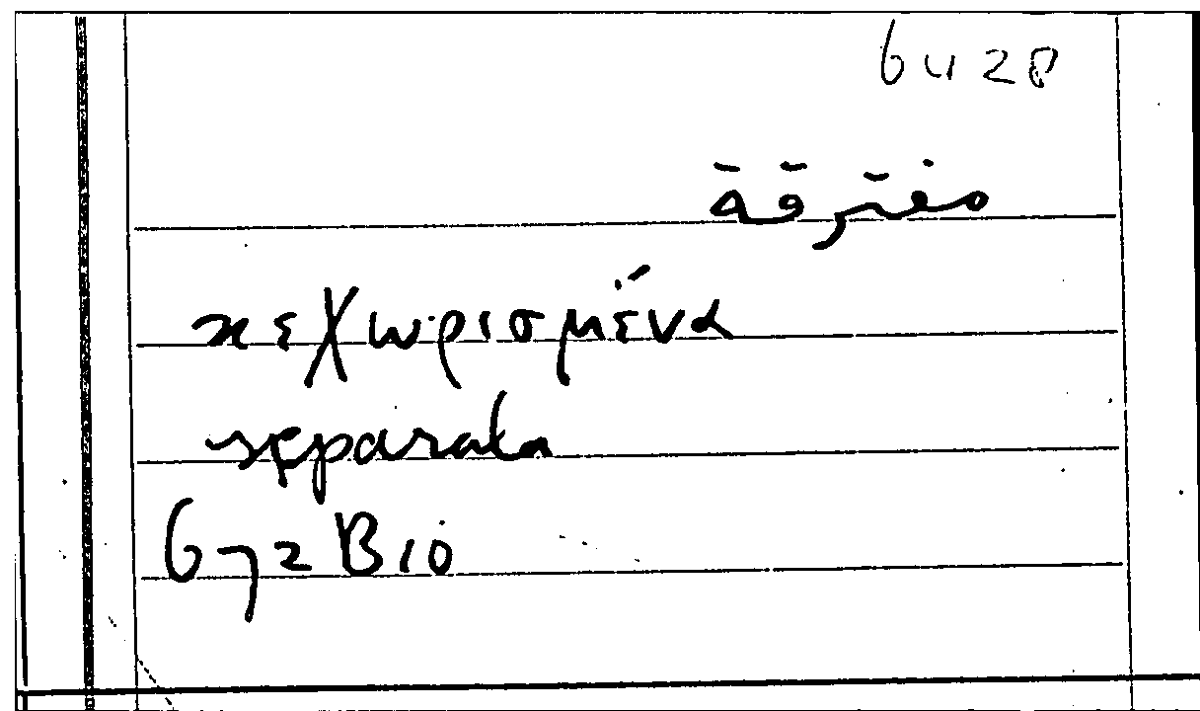 6u28
مفترقة
κεχωρισμένα
separata
672B10